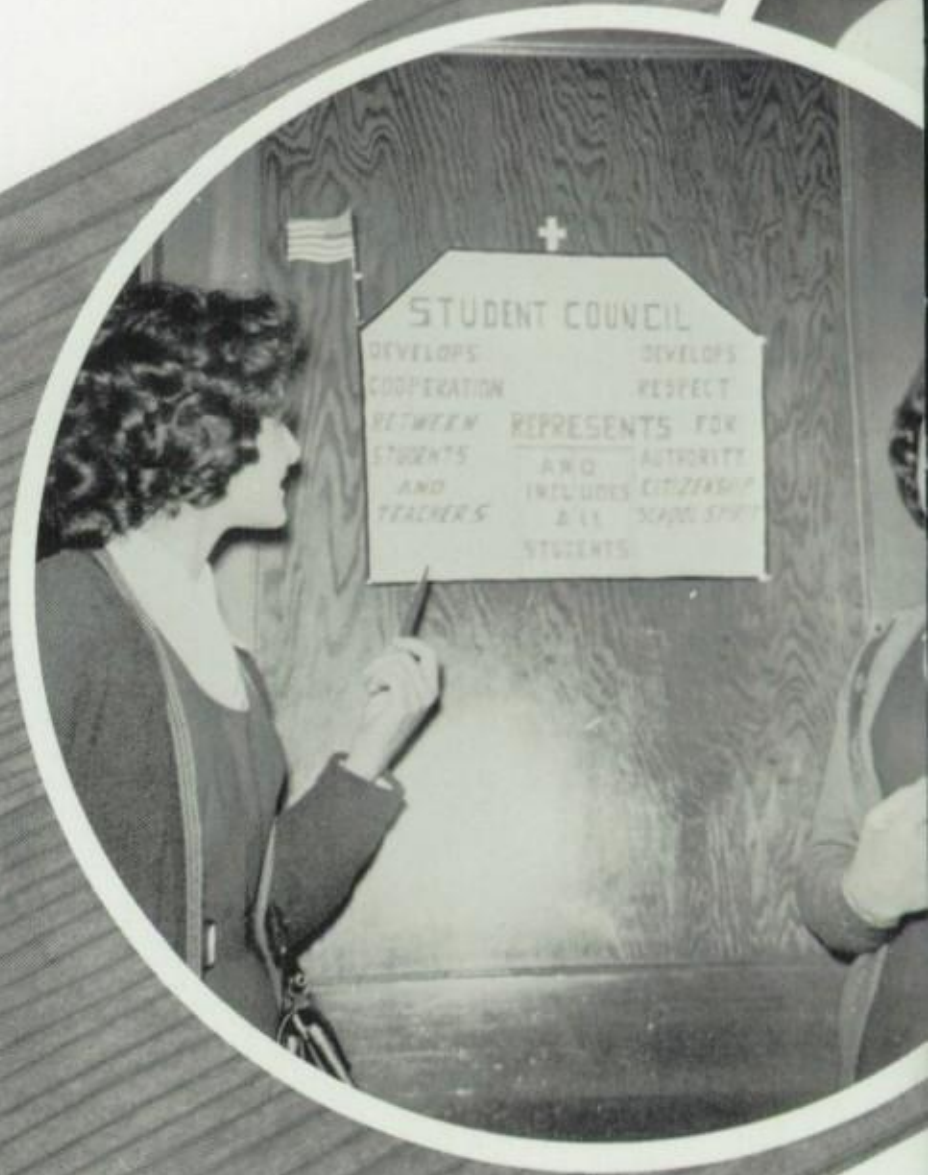 STUDENT COUNCIL
DEVELOPS
COOPERATION
BETWEEN
STUDENTS
AND
TEACHERS
REPRESENTS
AND
INCLUDES
ALL
STUDENTS
DEVELOPS
RESPECT
FOR
AUTHORITY
CITIZENSHIP
SCHOOL SPIRIT